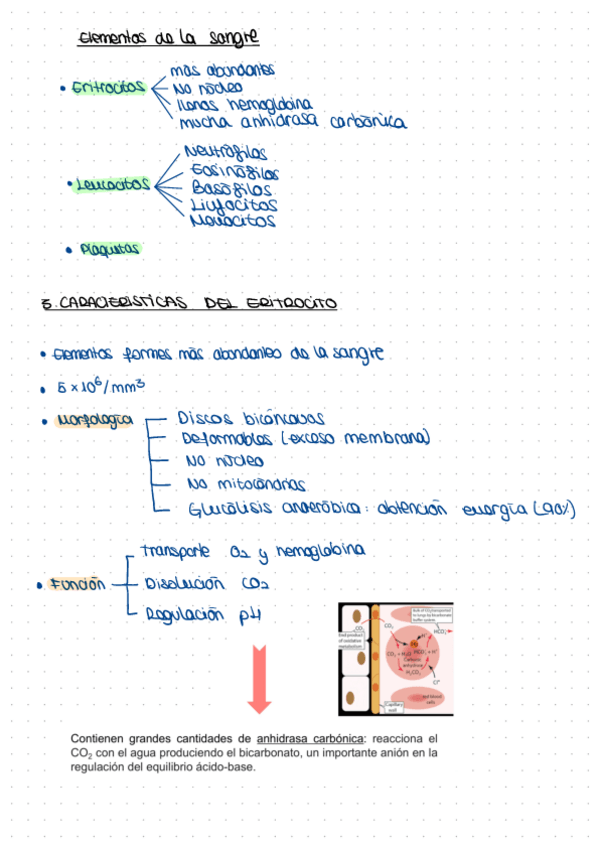 Elementos de la sangre
más abundantes
• Eritrocitos
No núcleo
llenas hemoglobina
mucha anhidrasa carbónica
Neutrófilos
Eosinófilos
• Leucocitos
Basófilos
Linfocitos
Monocitos
• Plaquetas
3. CARACTERÍSTICAS DEL ERITROCITO
• Elementos formes más abundantes de la sangre
• 5 x 10⁶/mm³
• Morfología
Discos bicóncavos
Deformables (exceso membrana)
No núcleo
No mitocondrias
Glucólisis anaeróbica: obtención energía (90%)
Transporte O₂ y hemoglobina
• Función
Disolución CO₂
Regulación pH
Bulk of CO₂ transported
to lungs as bicarbonate
buffer system
CO₂
CO₂
HCO₃⁻
End product
of oxidative
metabolism
H⁺
Hb
CO₂ + H₂O
HCO₃⁻ + H⁺
Carbonic
anhydrase
H₂CO₃
Cl⁻
Capillary
wall
red blood
cells
Contienen grandes cantidades de anhidrasa carbónica: reacciona el
CO₂ con el agua produciendo el bicarbonato, un importante anión en la
regulación del equilibrio ácido-base.